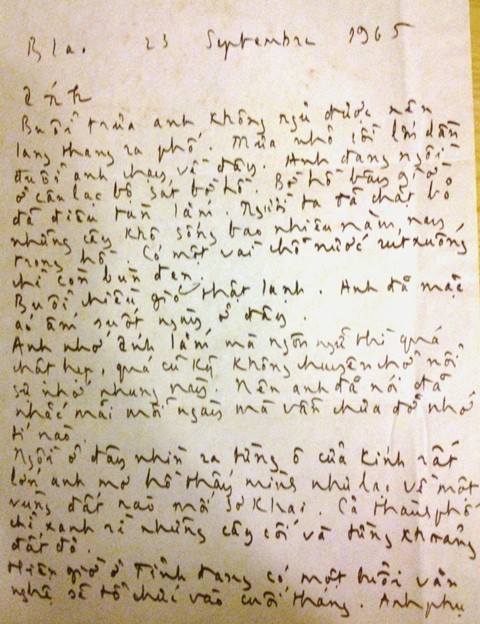 Bla. 23 Septembre 1965
Ánh
Buổi trưa anh không ngủ được nên
lang thang ra phố. Mưa nhỏ rồi lớn dần
đuổi anh chạy về đây. Anh đang ngồi
ở câu lạc bộ sát bờ hồ. Bờ hồ bây giờ
đã điêu tàn lắm. Người ta đã chặt bỏ
những cây khô sống bao nhiêu năm nay
trong hồ. Có một vài chỗ nước rút xuống
chỉ còn bùn đen.
Buổi chiều gió thật lạnh. Anh đã mặc
áo ấm suốt ngày ở đây.
Anh nhớ Ánh lắm mà ngôn ngữ thì quá
chật hẹp, quá cũ kỹ không chuyên chở nổi
sự nhớ nhung này. Nên anh đã nói đã
nhắc mãi mỗi ngày mà vẫn chưa đỡ nhớ
tí nào.
Ngồi ở đây nhìn ra từng ô cửa kính rất
lớn anh mơ hồ thấy mình như lạc về một
vùng đất nào mới sơ khai. Cả thành phố
chỉ xanh rì những cây cối và từng khoảng
đất đỏ.
Hiện giờ ở Tỉnh đang có một buổi văn
nghệ sẽ tổ chức vào cuối tháng. Anh phụ